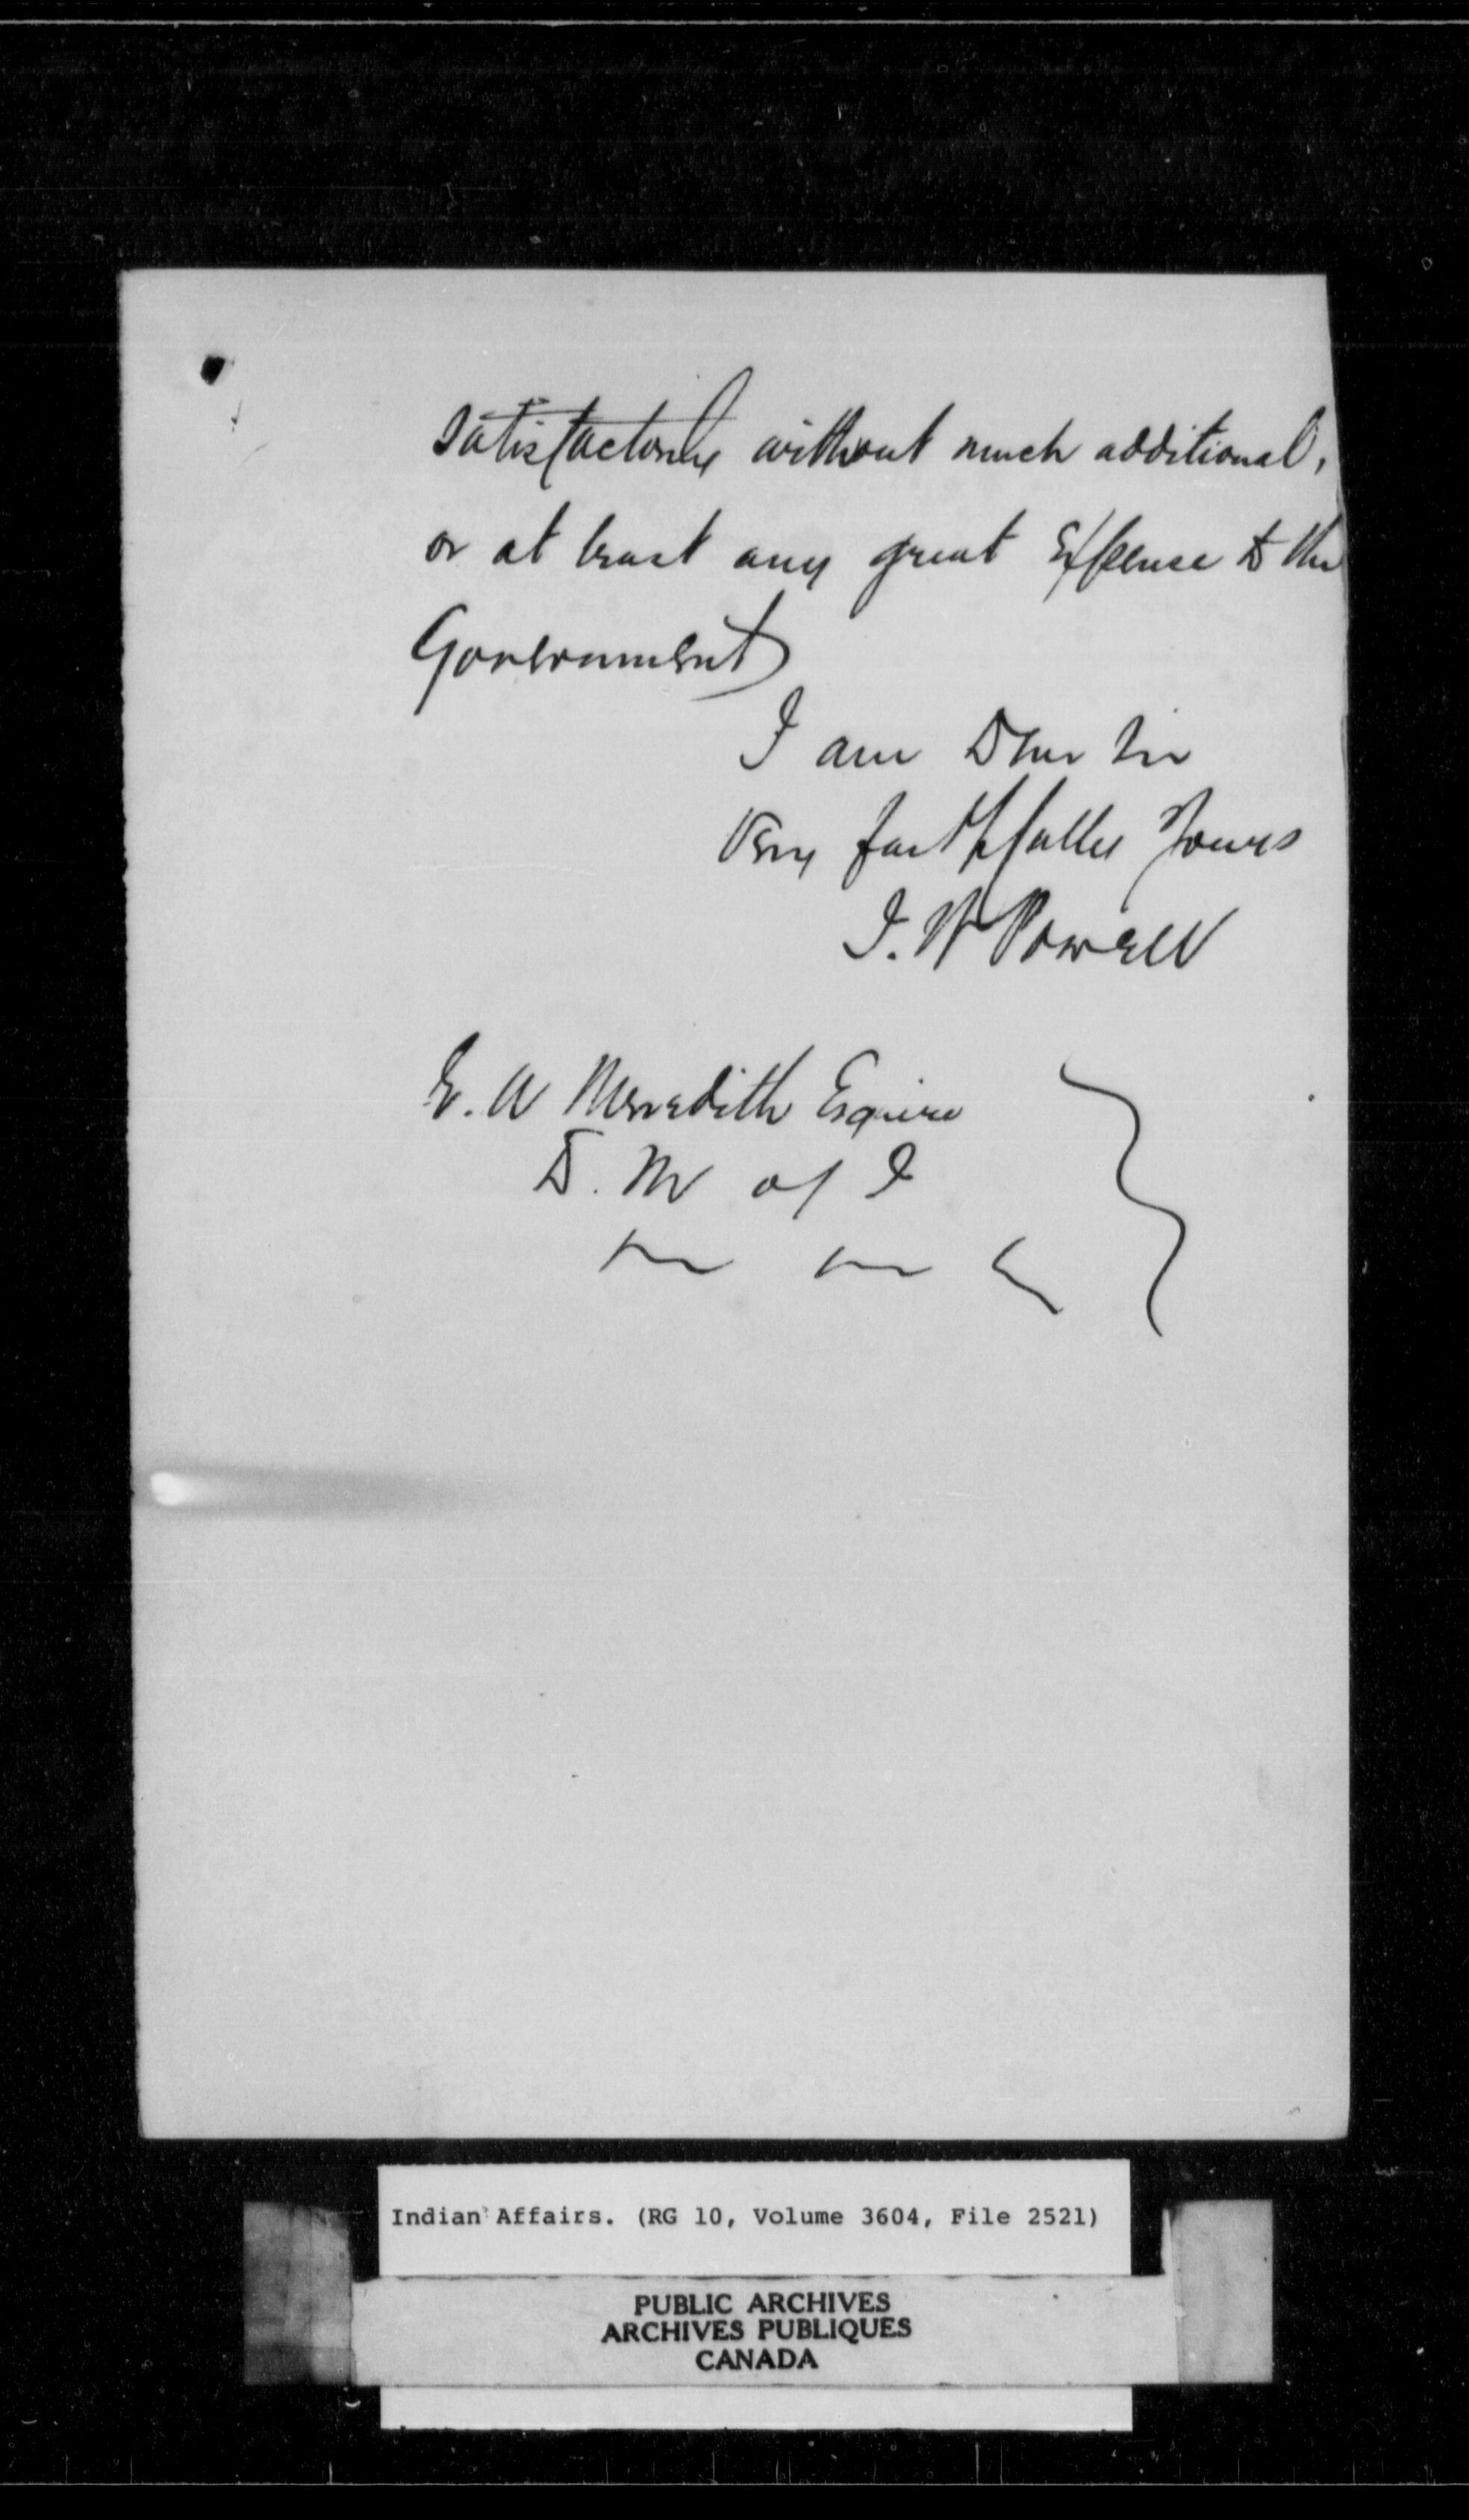 satisfactorily without much additional,
or at least any great Expense to the
Government
I am Dear Sir
Very faithfully Yours
I. W Powell
E. A Meredith Esquire
D. M of I
Indian Affairs. (RG 10, Volume 3604, File 2521)
PUBLIC ARCHIVES
ARCHIVES PUBLIQUES
CANADA